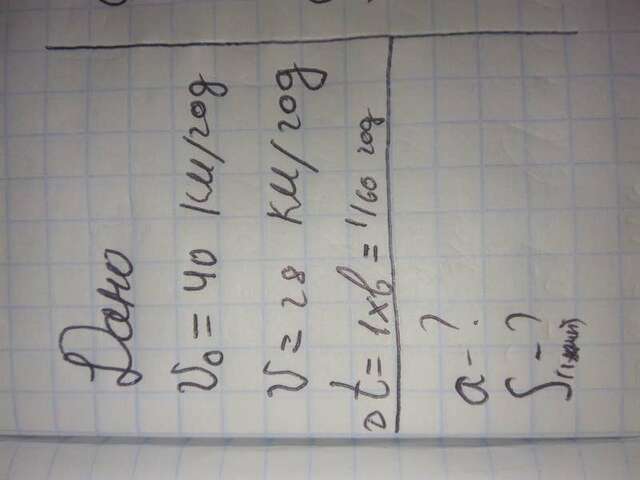 Дано
V₀ = 40 км/год
V = 28 км/год
∆t = 1 хв = 1/60 год
a - ?
S - ?